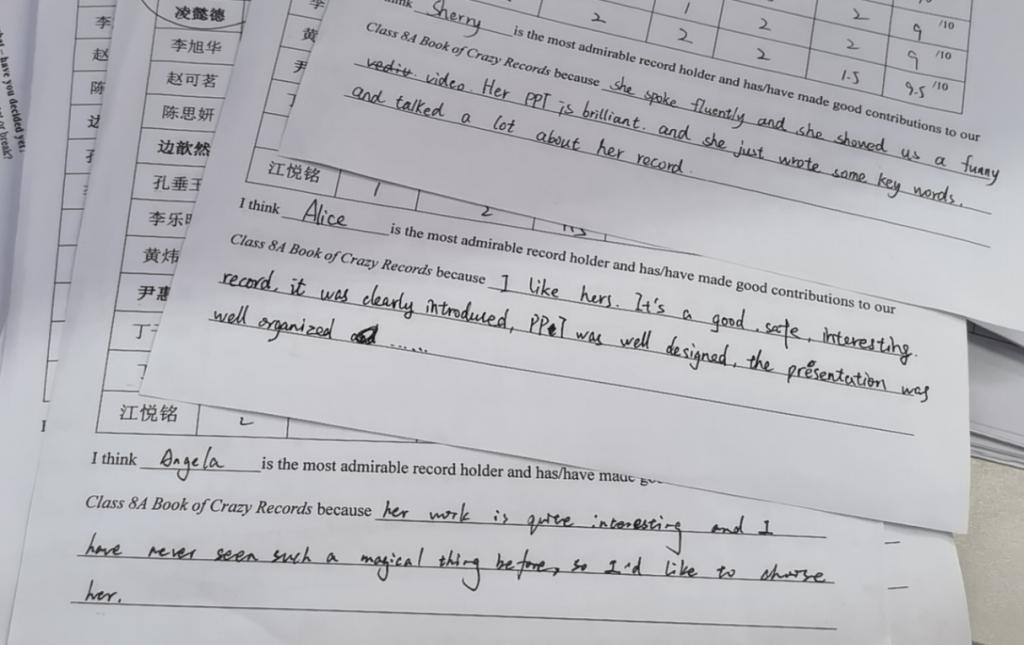 have you decided yet?
or break?
李
赵
陈
边
凌懿德
李旭华
赵可茗
陈思妍
边歆然
孔垂
李乐
黄炜
尹惠
丁
江悦铭 2
李
黄
江悦铭 1 2
2 1 2 2
2 2 2 9 /10
1.5 9.5 /10
Sherry is the most admirable record holder and has/have made good contributions to our
Class 8A Book of Crazy Records because she spoke fluently and she showed us a funny
video. Her PPT is brilliant. and she just wrote some key words.
and talked a lot about her record.
I think Alice is the most admirable record holder and has/have made good contributions to our
Class 8A Book of Crazy Records because I like hers. It's a good, safe, interesting.
record, it was clearly introduced, PPT was well designed, the presentation was
well organized ......
I think Angela is the most admirable record holder and has/have made
Class 8A Book of Crazy Records because her work is quite interesting and I
have never seen such a magical thing before, so I'd like to choose
her.